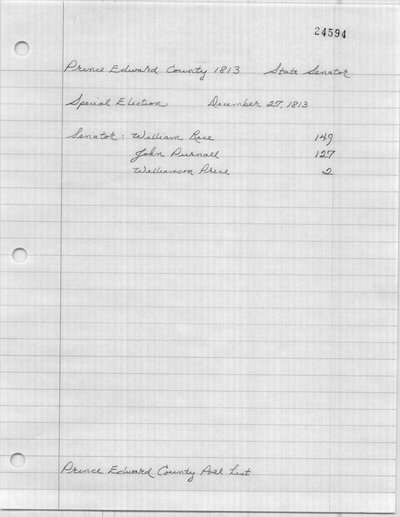 24594
Prince Edward County 1813 State Senator
Special Election December 27, 1813
Senator: William Rice 149
John Purnall 127
Williamson Price 2
Prince Edward County Poll List